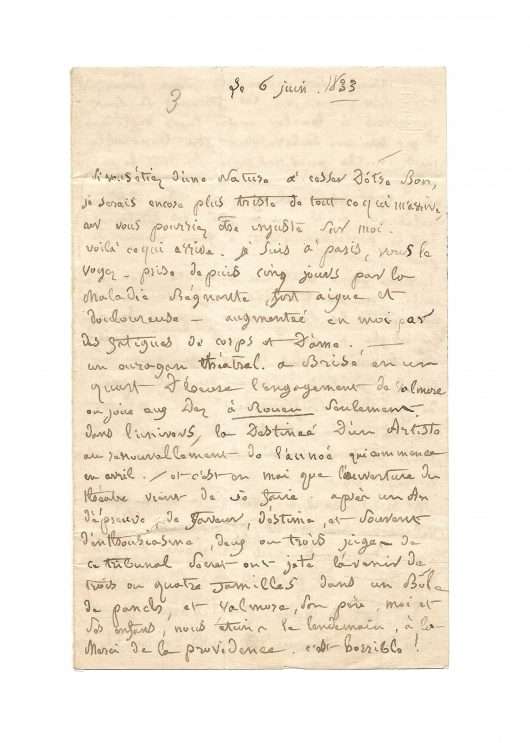 3
Le 6 juin. 1833
Si vous étiez d'une Nature à cesser d'être Bon,
je serais encore plus triste de tout ce qui m'arrive,
car vous pourriez être injuste sur moi.
voilà ce qui arrive. je suis à paris, vous le
voyez - prise depuis cinq jours par la
Maladie Régnante, fort aigue et
douloureuse - augmenteé en moi par
des fatigues de corps et d'âme. —
un ouragan théatral. a Brisé en un
quart d'heure l'engagement de valmore
on joue aux Dez à Rouen seulement
dans l'univers, la Destineé d'un Artiste
au renouvellement de l'anneé qui commence
en avril. / et c'est en mai que l'ouverture du
théâtre vient de se faire. après un An
d'épreuve, de faveur, d'estime, et souvent
d'enthousiasme, deux ou trois juges de
ce tribunal secret ont jeté l'avenir de
trois ou quatre familles dans un Bôle
de punch, et valmore, son père, moi et
ses enfans, nous étions le lendemain, à la
Merci de la providence. c'est horrible!